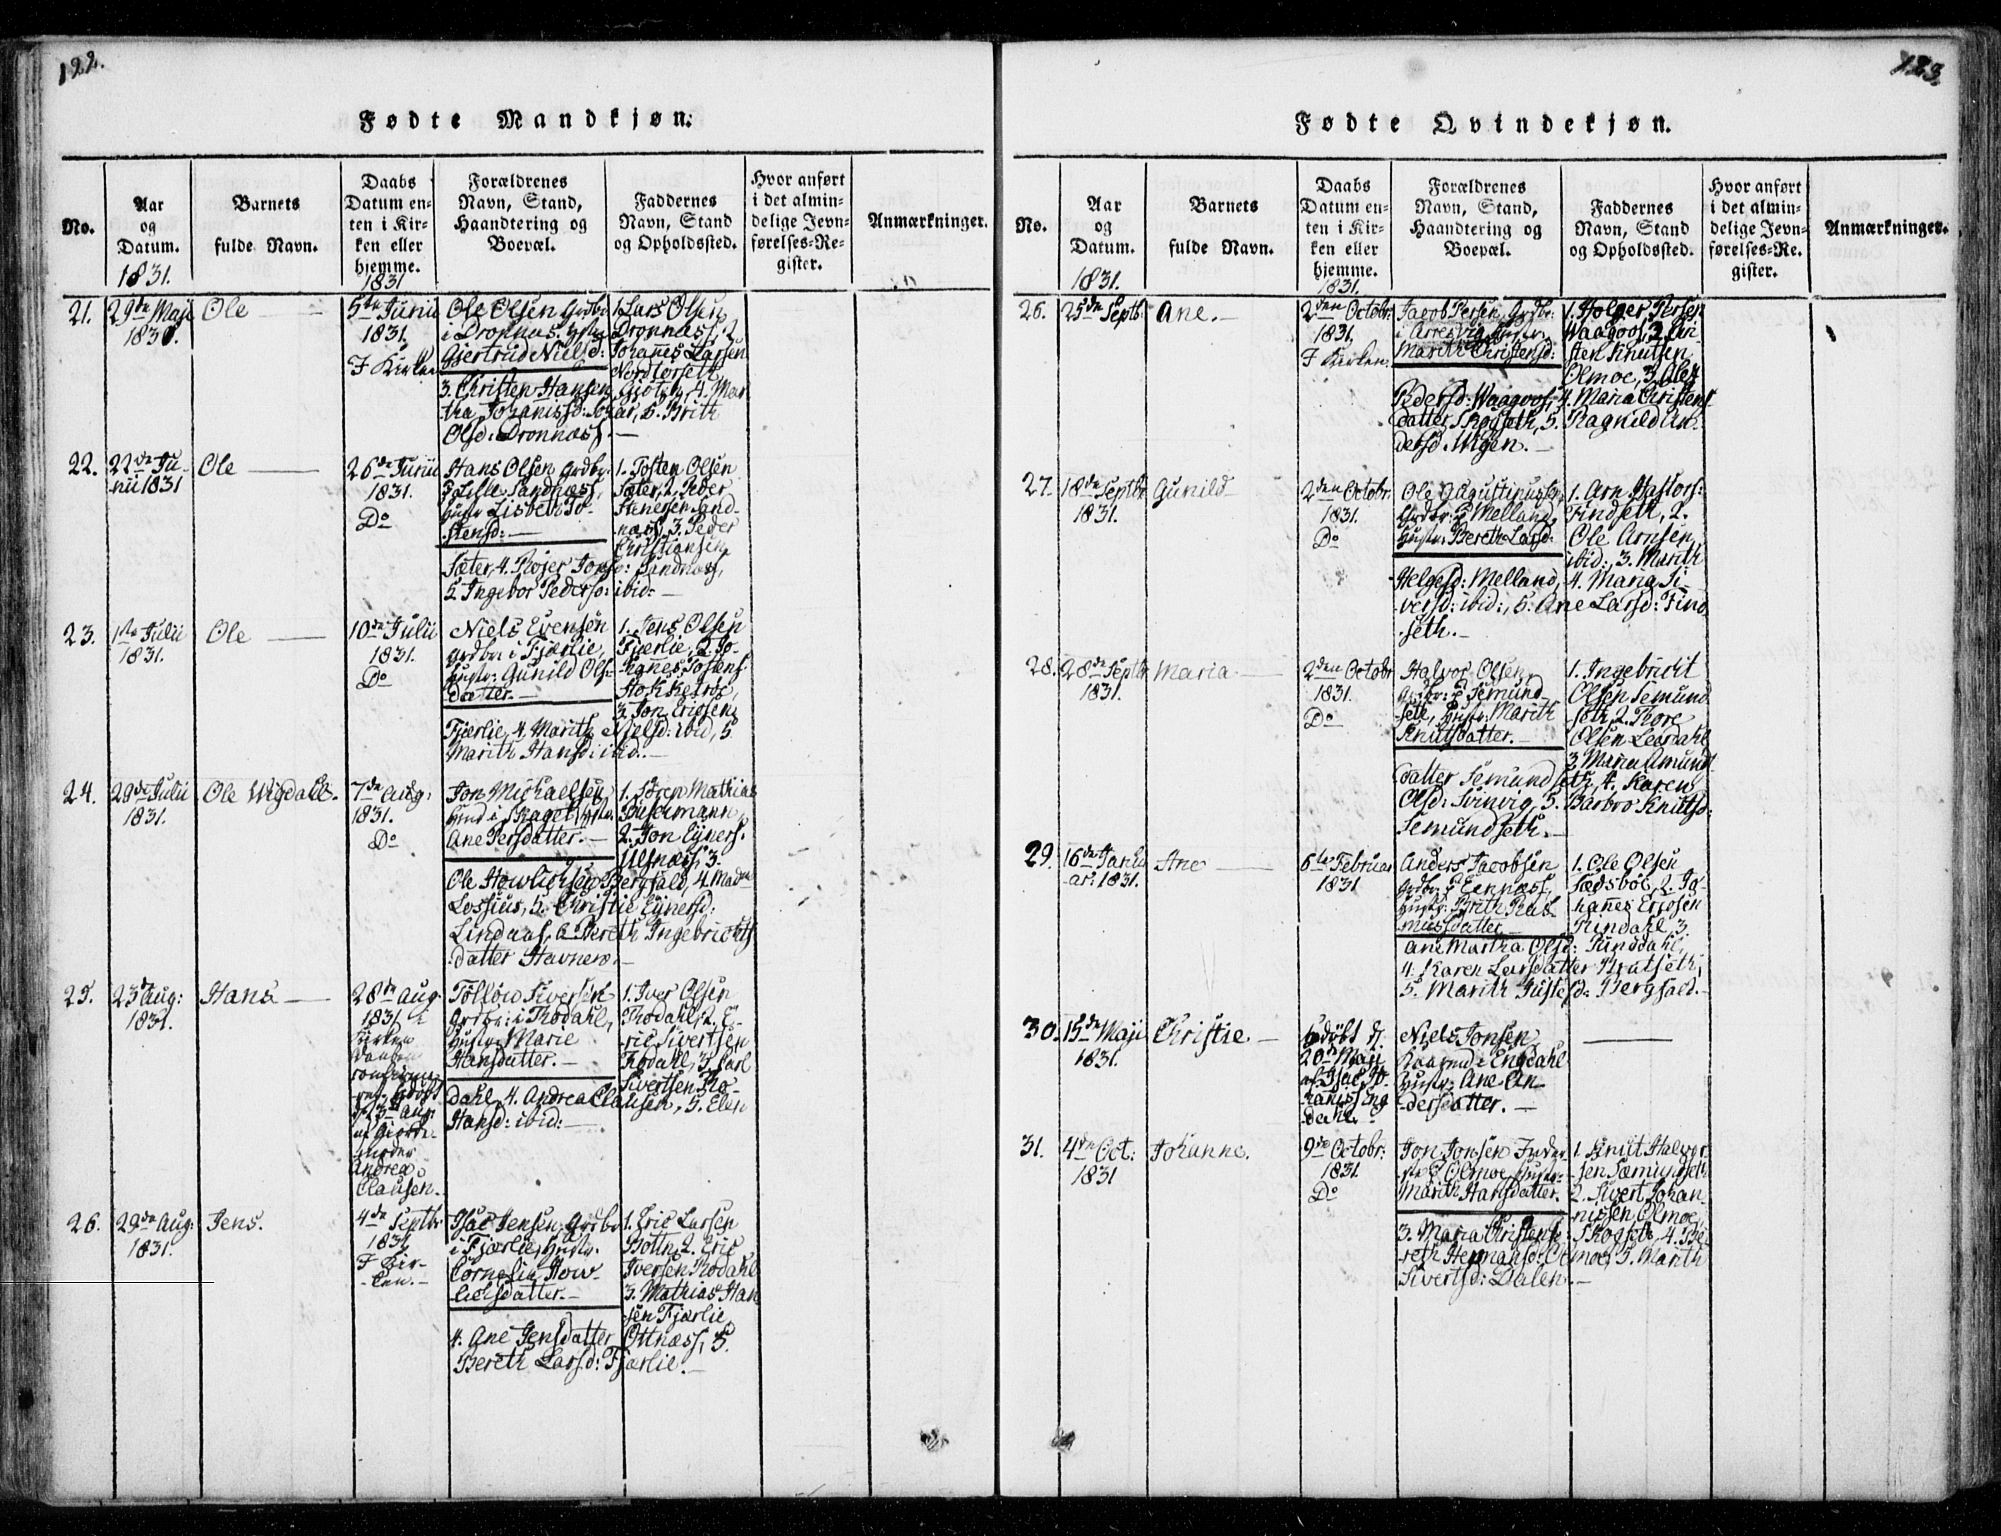 122.
Fødte Mandkjøn.
No.
Aar
og
Datum.
1831.
Barnets
fulde Navn.
Daabs
Datum en-
ten i Kir-
ken eller
hjemme.
1831
Forældrenes
Navn, Stand,
Haandtering og
Boepæl.
Faddernes
Navn, Stand
og Opholdssted.
Hvor anført
i det almin-
delige Jevn-
førelses-Re-
gister.
Anmærkninger.
21.
29de Maji
1831.
Ole
5te Junii
1831.
I Kirken
Ole Olsen Grdbr
i Dronnæs. Hustr
Gjertrud Nielsd:
1. Lars Olsen
Dronnæss, 2.
Johannes Larsen
Nordtorseth
3. Christen Hansen Gjöten, 4. Mar
tha Johanisd: ibar, 5. Brith
Olsd: Dronnæss.
22.
22de Ju-
nii 1831
Ole
26de Junii
1831.
Do
Hans Olsen Grdbr.
i Lille Sandnæss,
Hustr Lisbeth To-
stensd:
1. Tosten Olsen
Sæter, 2. Peder
Stenersen Sand-
næss, 3. Peder
Christiansen
Sæter, 4. Röjer Jonsd: Sandnæs,
5. Ingebor Pedersd: ibid:
23.
1ste Julii
1831.
Ole
10de Julii
1831.
Do
Niels Evensen
Grdbr i Fjærlie,
Hustr: Gunild Ols-
datter.
1. Jens Olsen
Fjærlie, 2. Jo-
hannes Tostens:
3. Jon Ericsen
Fjærlie, 4. Marith Nielsd: ibid, 5
Marith Hansd: ibid.
24.
28de Julii
1831.
Ole Wigdahl.
7de Aug.
1831.
Do
Jon Michaelsen
Hmd i Skaget, Hstr.
Ane Persdatter.
1. Sören Mathias
Büschmann
2. Jon Ejners:
Ulsnæss, 3.
Ole Howlichsen Bergsald, 4. Madm
Lossius, 5. Christie Ejnersd:
Lindaas, 6. Bereth Ingebricts
datter Havnen.
25.
23 Aug:
1831.
Hans
28de Aug.
1831. i
Kirken
Daaben
af Gjorde-
moder
Andrea
Clausen.
Töllöw Siversen
Grdbr: i Thodahl,
Hustr: Marie
Hansdatter.
1. Iver Olsen
Thodahl, 2. E-
ric Sivertsen
Thodahl, 3. Carl
Sivertsen Tho-
dahl, 4. Andrea Clausen, 5. Elen
Hansd: ibid:
26.
29de Aug:
1831.
Jens.
4de Septbr
1831
I Kir-
ken.
Isac Jensen, Grdbr
i Fjærlie, Hustr.
Cornelia How-
lielsdatter.
1. Eric Larsen
Bottn, 2. Eric
Iversen Thodahl
3. Mathias Han
sen Fjærlie
4. Ane Jensdatter Ottnæss, 5.
Bereth Larsd: Fjærlie.
123.
Fødte Qvindekjøn.
No.
Aar
og
Datum.
1831.
Barnets
fulde Navn.
Daabs
Datum en-
ten i Kir-
ken eller
hjemme.
1831.
Forældrenes
Navn, Stand,
Haandtering og
Boepæl.
Faddernes
Navn, Stand
og Opholdssted.
Hvor anført
i det almin-
delige Jevn-
førelses-Re-
gister.
Anmærkninger.
26.
25de Septb.
Ane.
2den Octobr.
1831.
I Kirken.
Jacob Persen, Grdbr.
i Arresvig, Hustr.
Marith Christensd:
1. Holger Persen
Waagoos, 2. Cri-
sten Knutsen
Olmoe, 3. Olea
Pedersd: Waagoos, 4. Maria Christens-
datter Skogseth, 5. Ragnild An-
dersd: Wigen.
27.
18de Septbr
1831.
Gunild
2den Octobr.
1831.
Do
Ole Augustinussen
Grdbr: i Melland,
Hustr: Bereth Larsd:
1. Arn Hastors:
Findseth, 2.
Ole Arnsen,
ibid:, 3. Marith
Helgesd: Melland, 4. Maria Si-
versd: ibid:, 5. Ane Larsd: Find
seth.
28.
28de Septbr
1831.
Maria
2den Octobr
1831.
Do
Halvor Olsen,
Grdbr: i Semund-
seth, Hustr: Marith
Knutsdatter.
1. Ingebricht
Olsen Semund
seth, 2. Thore
Olsen Leerdahl
3. Maria Amund
datter Semundseth, 4. Karen
Olsd: Svinvig, 5. Barbro Knutsd:
Semundseth.
29.
16de Janu
ar: 1831.
Ane
6te Februar
1831
Anders Jacobsen
Grdbr: i Eennæss,
Hustr: Brith Ras-
musdatter
1. Ole Olsen
Sædsböe, 2. Jo-
hanes Ericsen
Rindahl, 3.
ane Martha Olsd: Sunddahl,
4. Karen Larsdatter Brutseth,
5. Marith Justesd: Bergsald.
30.
15de Maji
1831.
Christie
hdöbt d.
20de Maji
af Isac Jo-
hanis Eng
dahl.
Niels Jonsen
Huusmd i Engdahl
Hustr: Ane An-
dersdatter.
31.
4de Oct:
1831
Johanne.
9de Octobr:
1831
Do
Jon Jonsen Inder-
ste i Olmoe, Hustr:
Marith Hansdatter.
1. Knut Halvor
sen Sæmundseth
2. Sivert Johan-
nissen Olmoe,
3. Maria Christensd: Skogseth, 4. Be
reth Hermansd: Olmoe, 5. Marith
Sivertsd: Dalen.